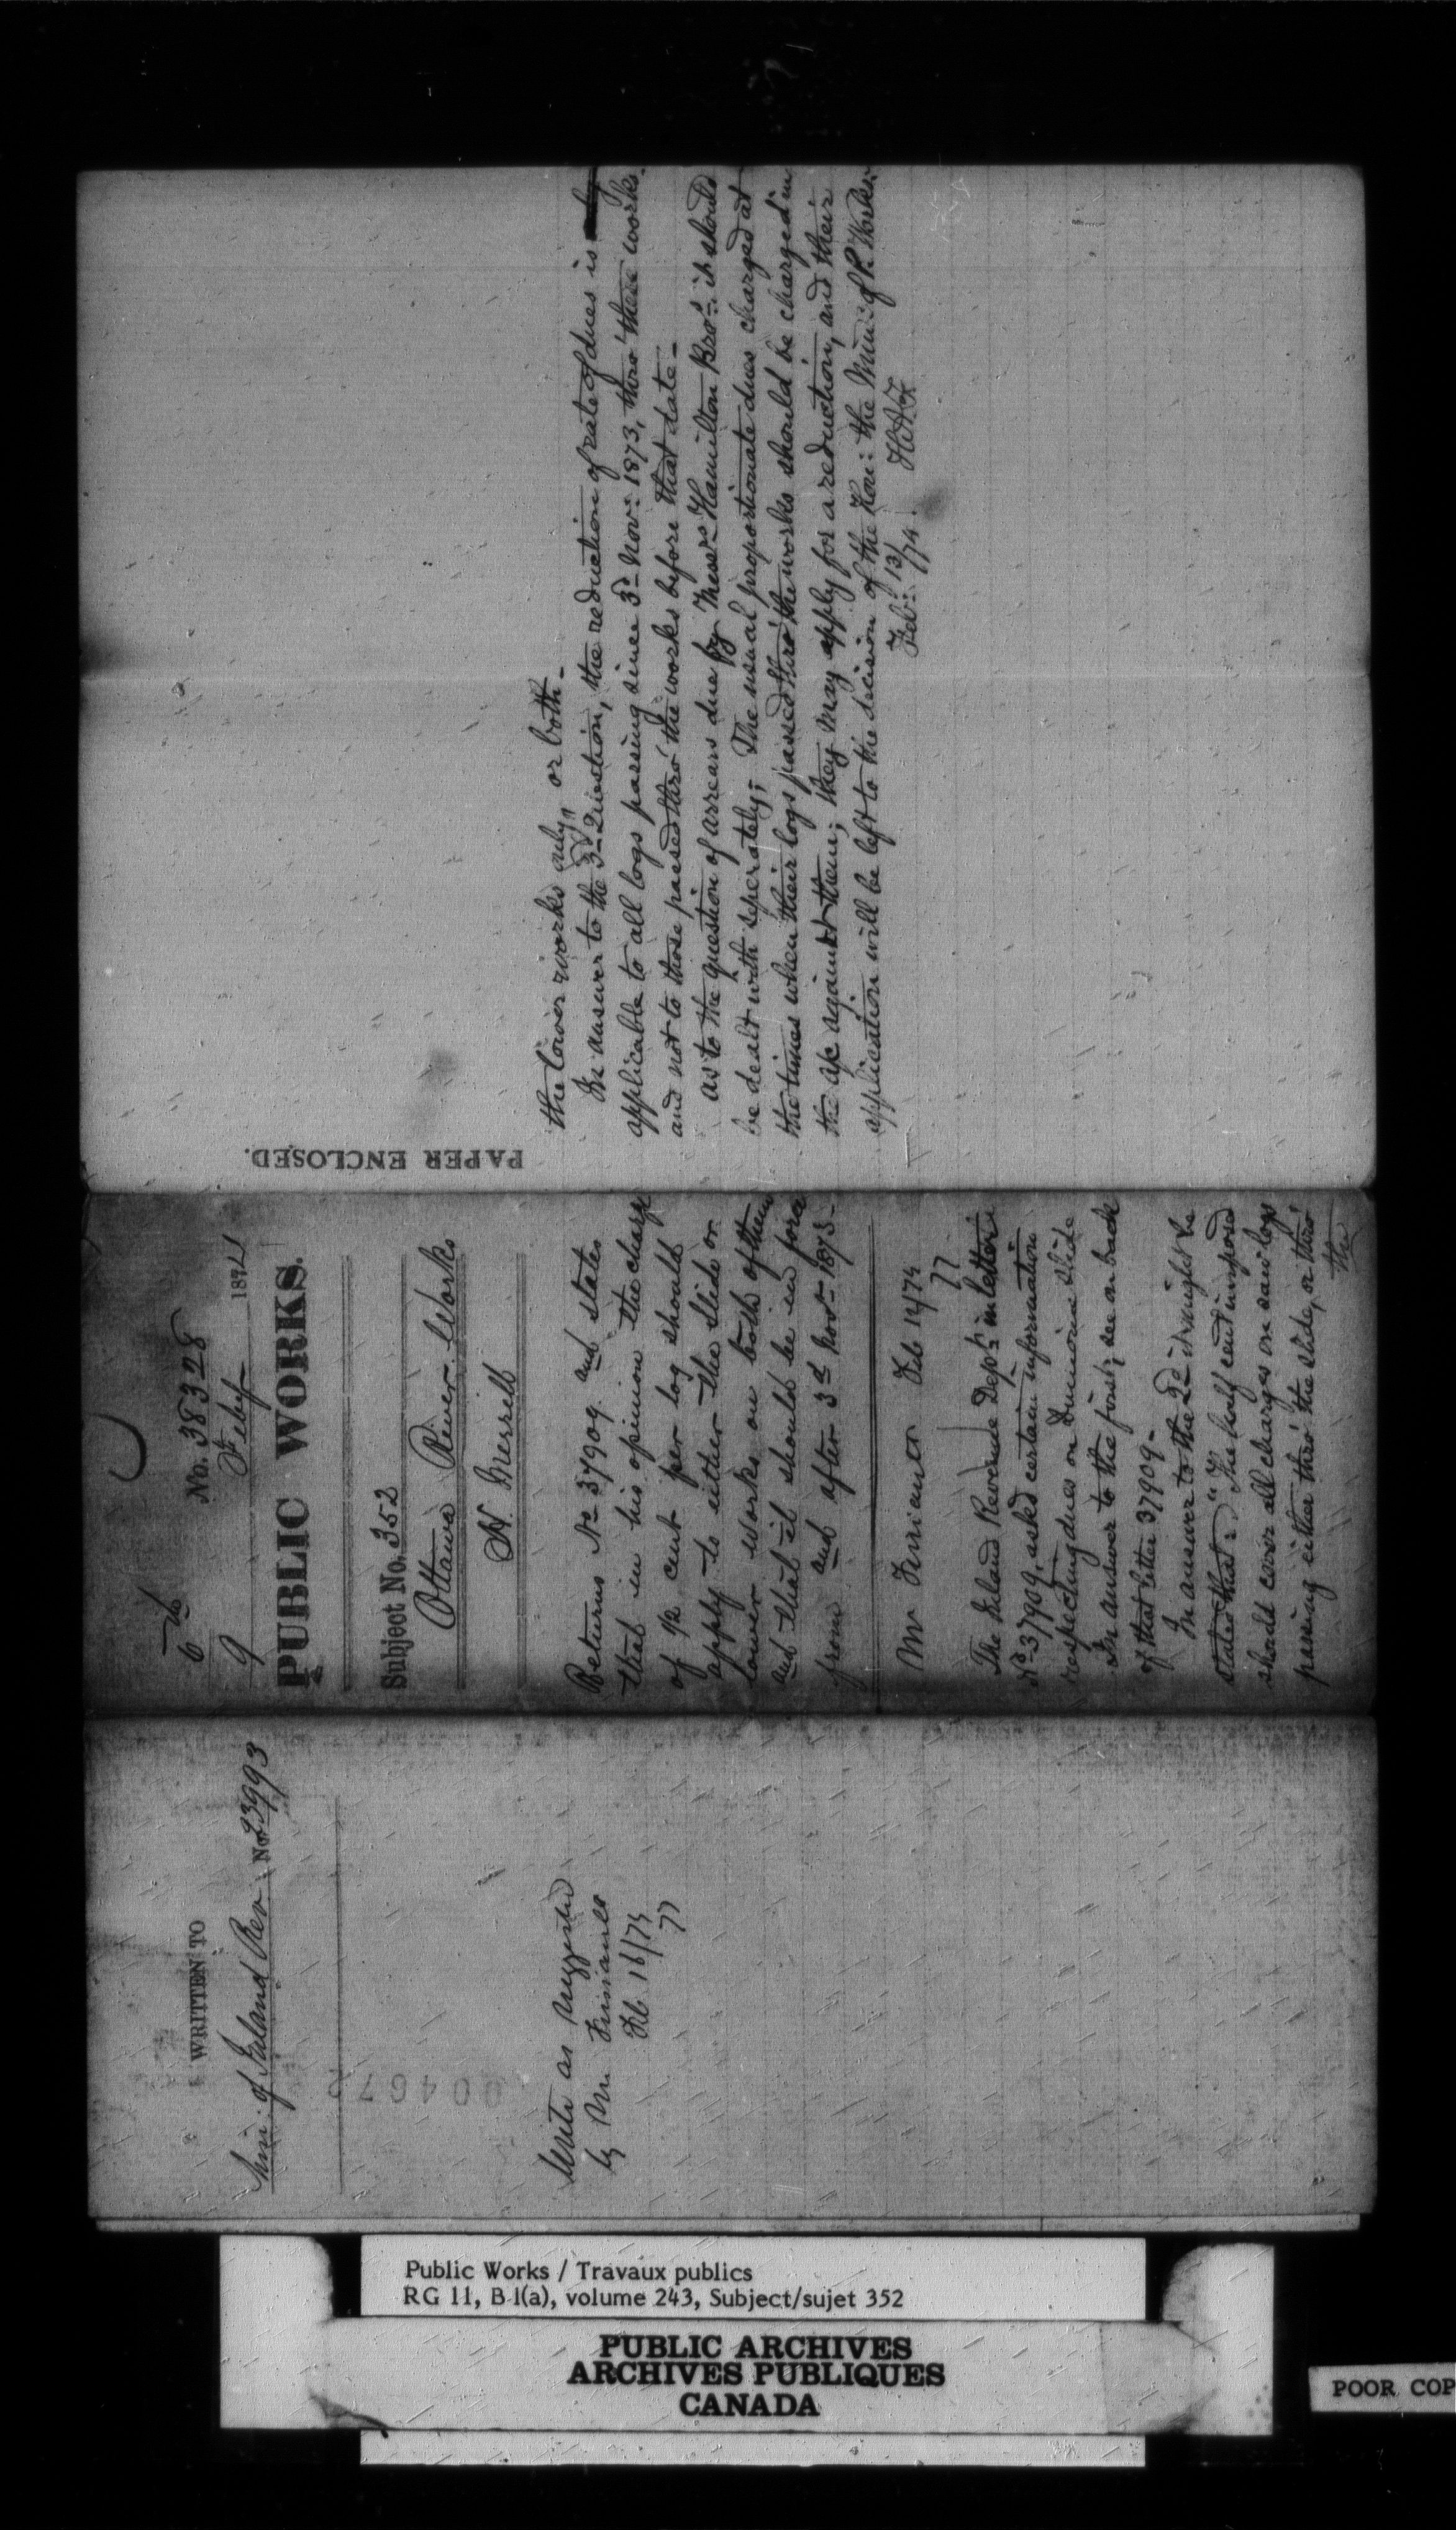 WRITTEN TO
Min: of Inland Rev. No 23993
004672
Write as suggested
by Mr
Feb. 16/74
6th
No. 38328
9 Feby 1874
PUBLIC WORKS.
Subject No. 352
Ottawa River Works
H. Merrell
Returns No 37909 and states
that in his opinion the charge
of 1/2 cent per log should
apply to either the slide or
lower works or both of them
and that it should be in force
from and after 3d Novr 1873-
Mr Feb 14/74
The Inland Revenue Dept: in letter:
No 37909, asked certain information
respecting dues on Dumoine slide
In answer to the first; see on back
of that letter 37909-
In answer to the 2d it might be
stated that: "The half cent imposed
should cover all charges on saw logs
passing either thro' the slide, or thro'
the
PAPER ENCLOSED.
the lower works only, or both-
In answer to the 3d Question, the reduction of rate of dues is
applicable to all logs passing since 3d Nov: 1873, thro' these works.
and not to those passed thro' the works before that date-
As to the question of arrears due by Messrs Hamilton Bros. it should
be dealt with seperately; The usual proportionate dues charged at
the times when their logs passed thro' the works should be charged in
the a/c against them; they may apply for a reduction, and their
application will be left to the decision of the Hon: the Minr of P. Works:
Feb: 13/74. HAF
Public Works / Travaux publics
RG 11, B 1(a), volume 243, Subject/sujet 352
PUBLIC ARCHIVES
ARCHIVES PUBLIQUES
CANADA
POOR COP